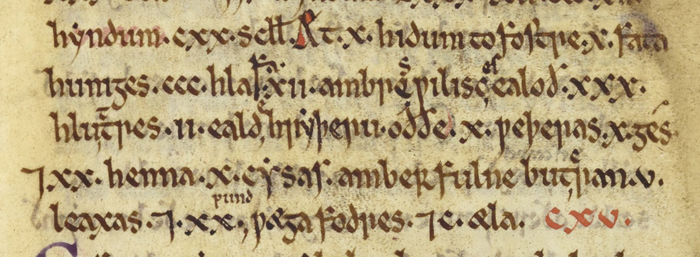 hyndum· cxx· scll̄· Æt· x· hidum to fostre· x· fata
huniges· ccc· hlafa· xii· ambres ƿilisces ealoð· xxx·
hluttres· ii· ealde hryþeru· oððe· x· ƿeþeras· x· ges·
⁊· xx· henna· x· cysas· amber fulne buteran· v·
leaxas· ⁊· xx· pund ƿæga fodres· ⁊ c· æla· cxv·